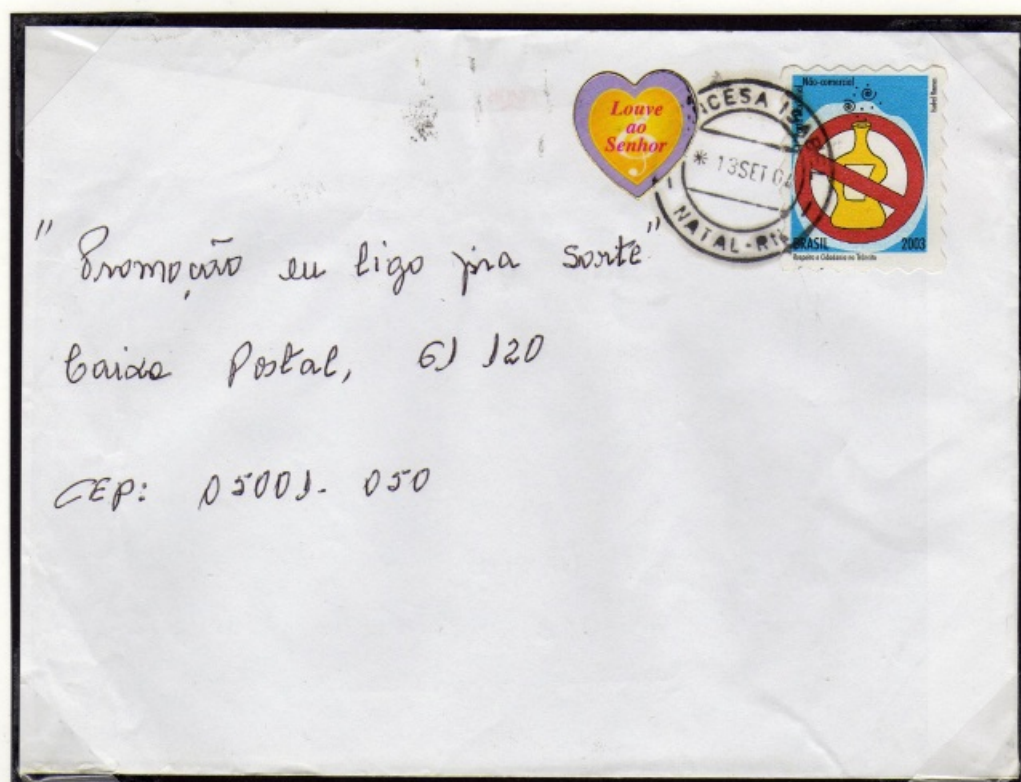 Louve
ao
Senhor
Não-comercial
* 13 SET 04
NATAL-RN
BRASIL 2003
Respeito e Cidadania no Trânsito
"Promoção eu ligo pra sorte"
Caixa Postal, 61 120
CEP: 05001-050